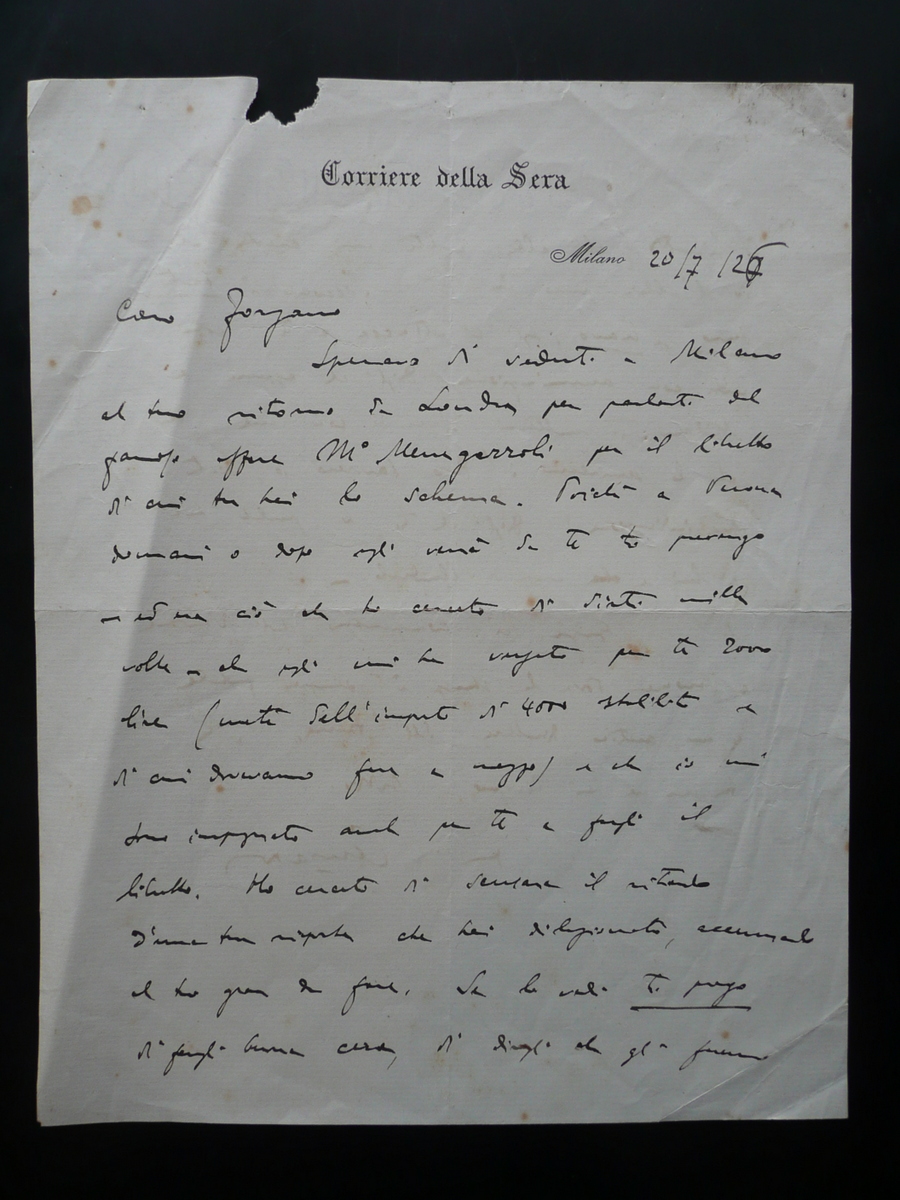 Corriere della Sera
Milano 20/7 /26
Caro Forzano
Speravo di vederti a Milano
al tuo ritorno da Londra per parlarti del
famoso affare M° Menegazzoli per il libretto
di cui tu hai lo schema. Poichè a Verona
domani o dopo egli verrà da te ti prevengo
ciò che ho cercato di dirti mille
volte – che egli mi ha versato per te 2000
lire (metà dell'importo di 4000 stabilito e
di cui dovevamo fare a mezzo) e che io mi
sono impegnato anche per te a fargli il
libretto. Ho cercato di scusare il ritardo
d'una tua risposta che hai dilazionato, accennando
al tuo gran da fare. Se lo vedi ti prego
di fargli buona cera, di dirgli che gli faremo